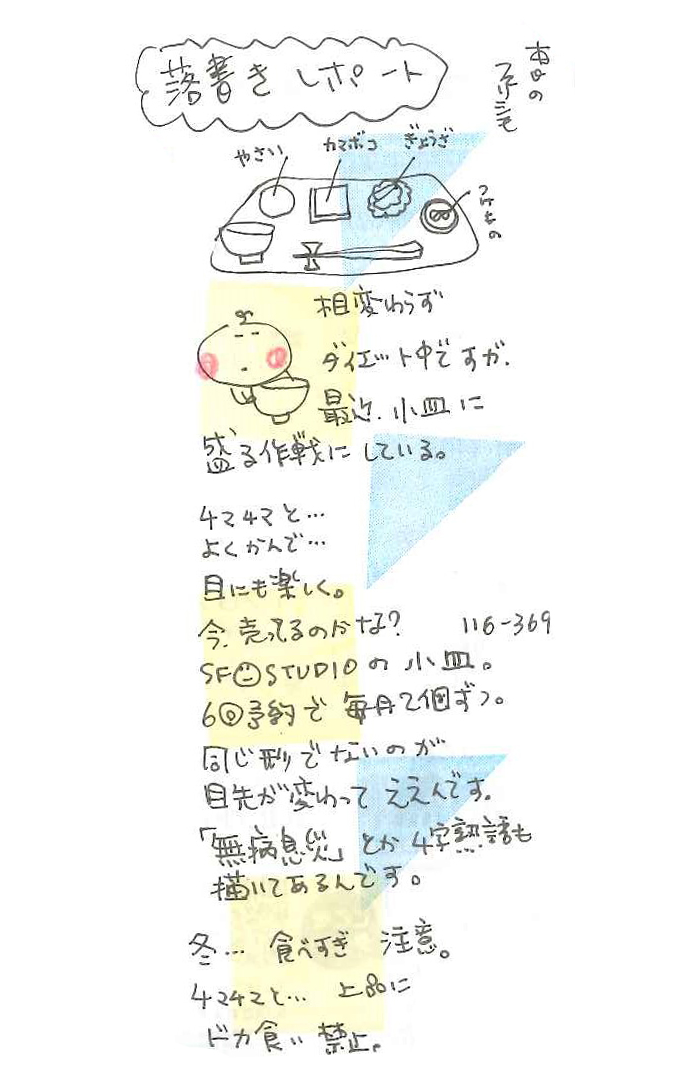 落書きレポート
本日の
やさい
カマボコ
ぎょうざ
つけもの
相変わらず
ダイエット中ですが、
最近、小皿に
盛る作戦にしている。
チマチマと…
よくかんで…
目にも楽しく。
今、売ってるのかな? 116-369
SF☺STUDIOの 小皿。
6回予約で 毎月2個ずつ。
同じ形でないのが
目先が変わって ええんです。
「無病息災」とか 4字熟語も
描いてあるんです。
冬… 食べすぎ 注意。
チマチマと… 上品に
ドカ食い 禁止。